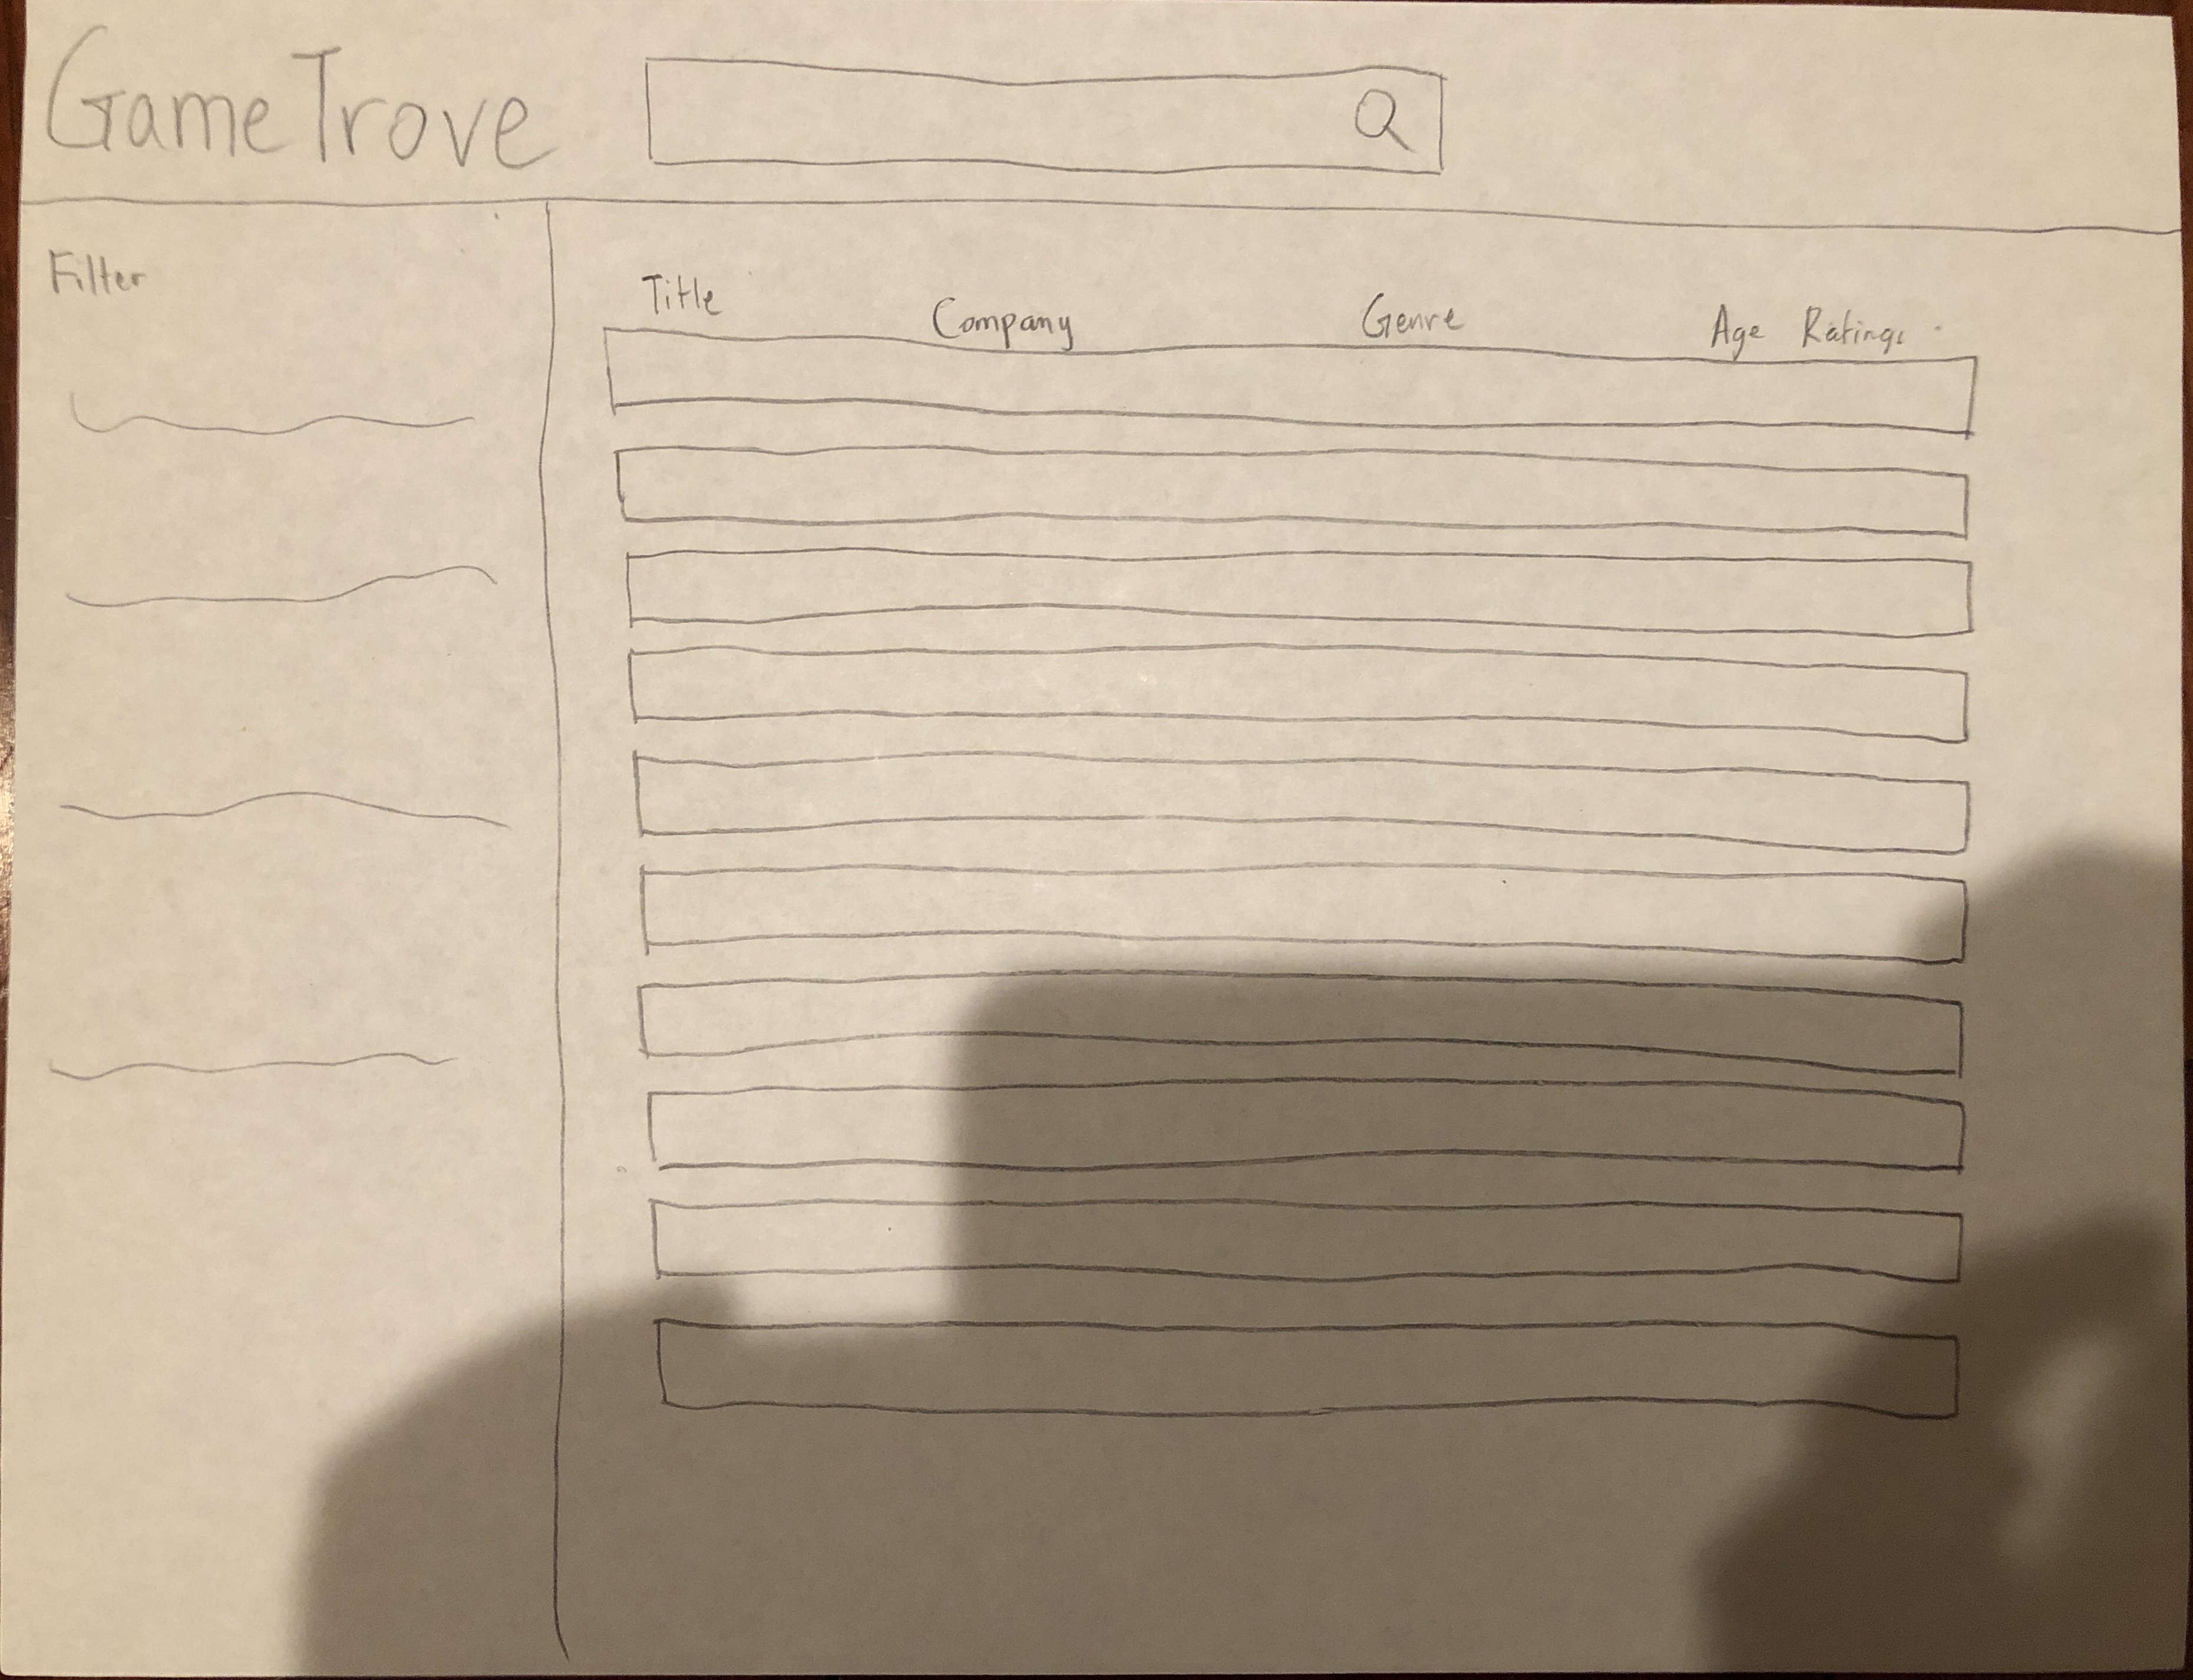 GameTrove
Filter
Title Company Genre Age Ratings